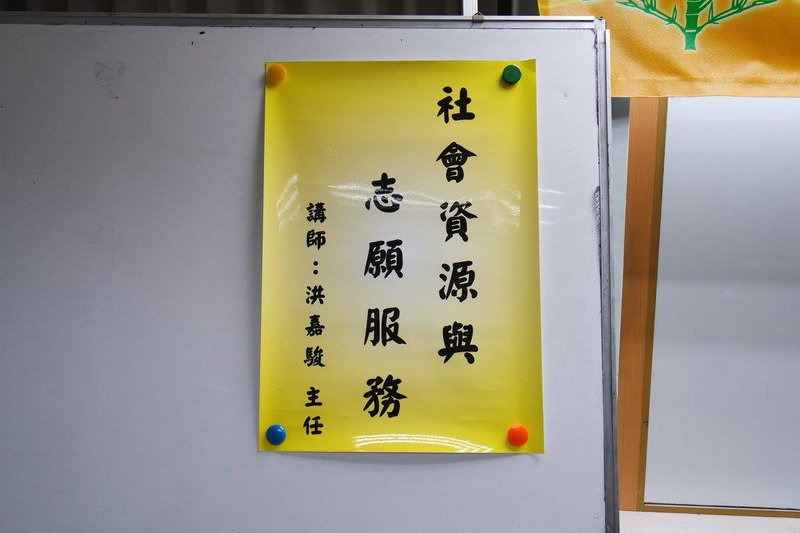 社會資源與
志願服務
講師：洪嘉駿 主任